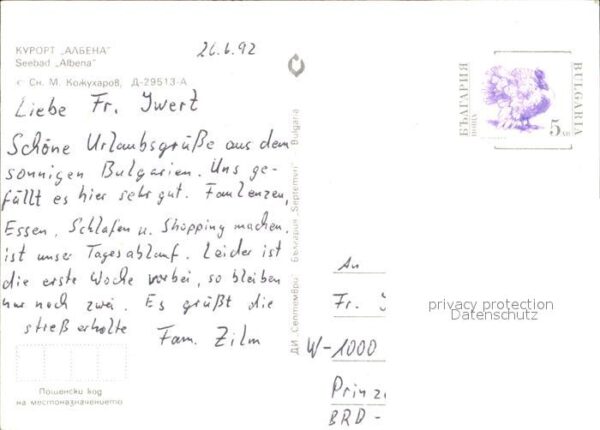 КУРОРТ „АЛБЕНА"
Seebad „Albena"
Сн. М. Кожухаров, Д-29513-А
26.6.92
Liebe Fr. Iwert
Schöne Urlaubsgrüße aus dem
sonnigen Bulgarien. Uns ge-
fällt es hier sehr gut. Faulenzen,
Essen, Schlafen u. Shopping machen,
ist unser Tagesablauf. Leider ist
die erste Woche vorbei, so bleiben
nur noch zwei. Es grüßt die
streßerholte Fam. Zilm
Пощенски код
на местоназначението
ДИ „Септември" България „Septemvri" Bulgaria
БЪЛГАРИЯ
ПОЩА
5 лв
BULGARIA
An
Fr.
privacy protection
Datenschutz
W-1000
Prinz
BRD-